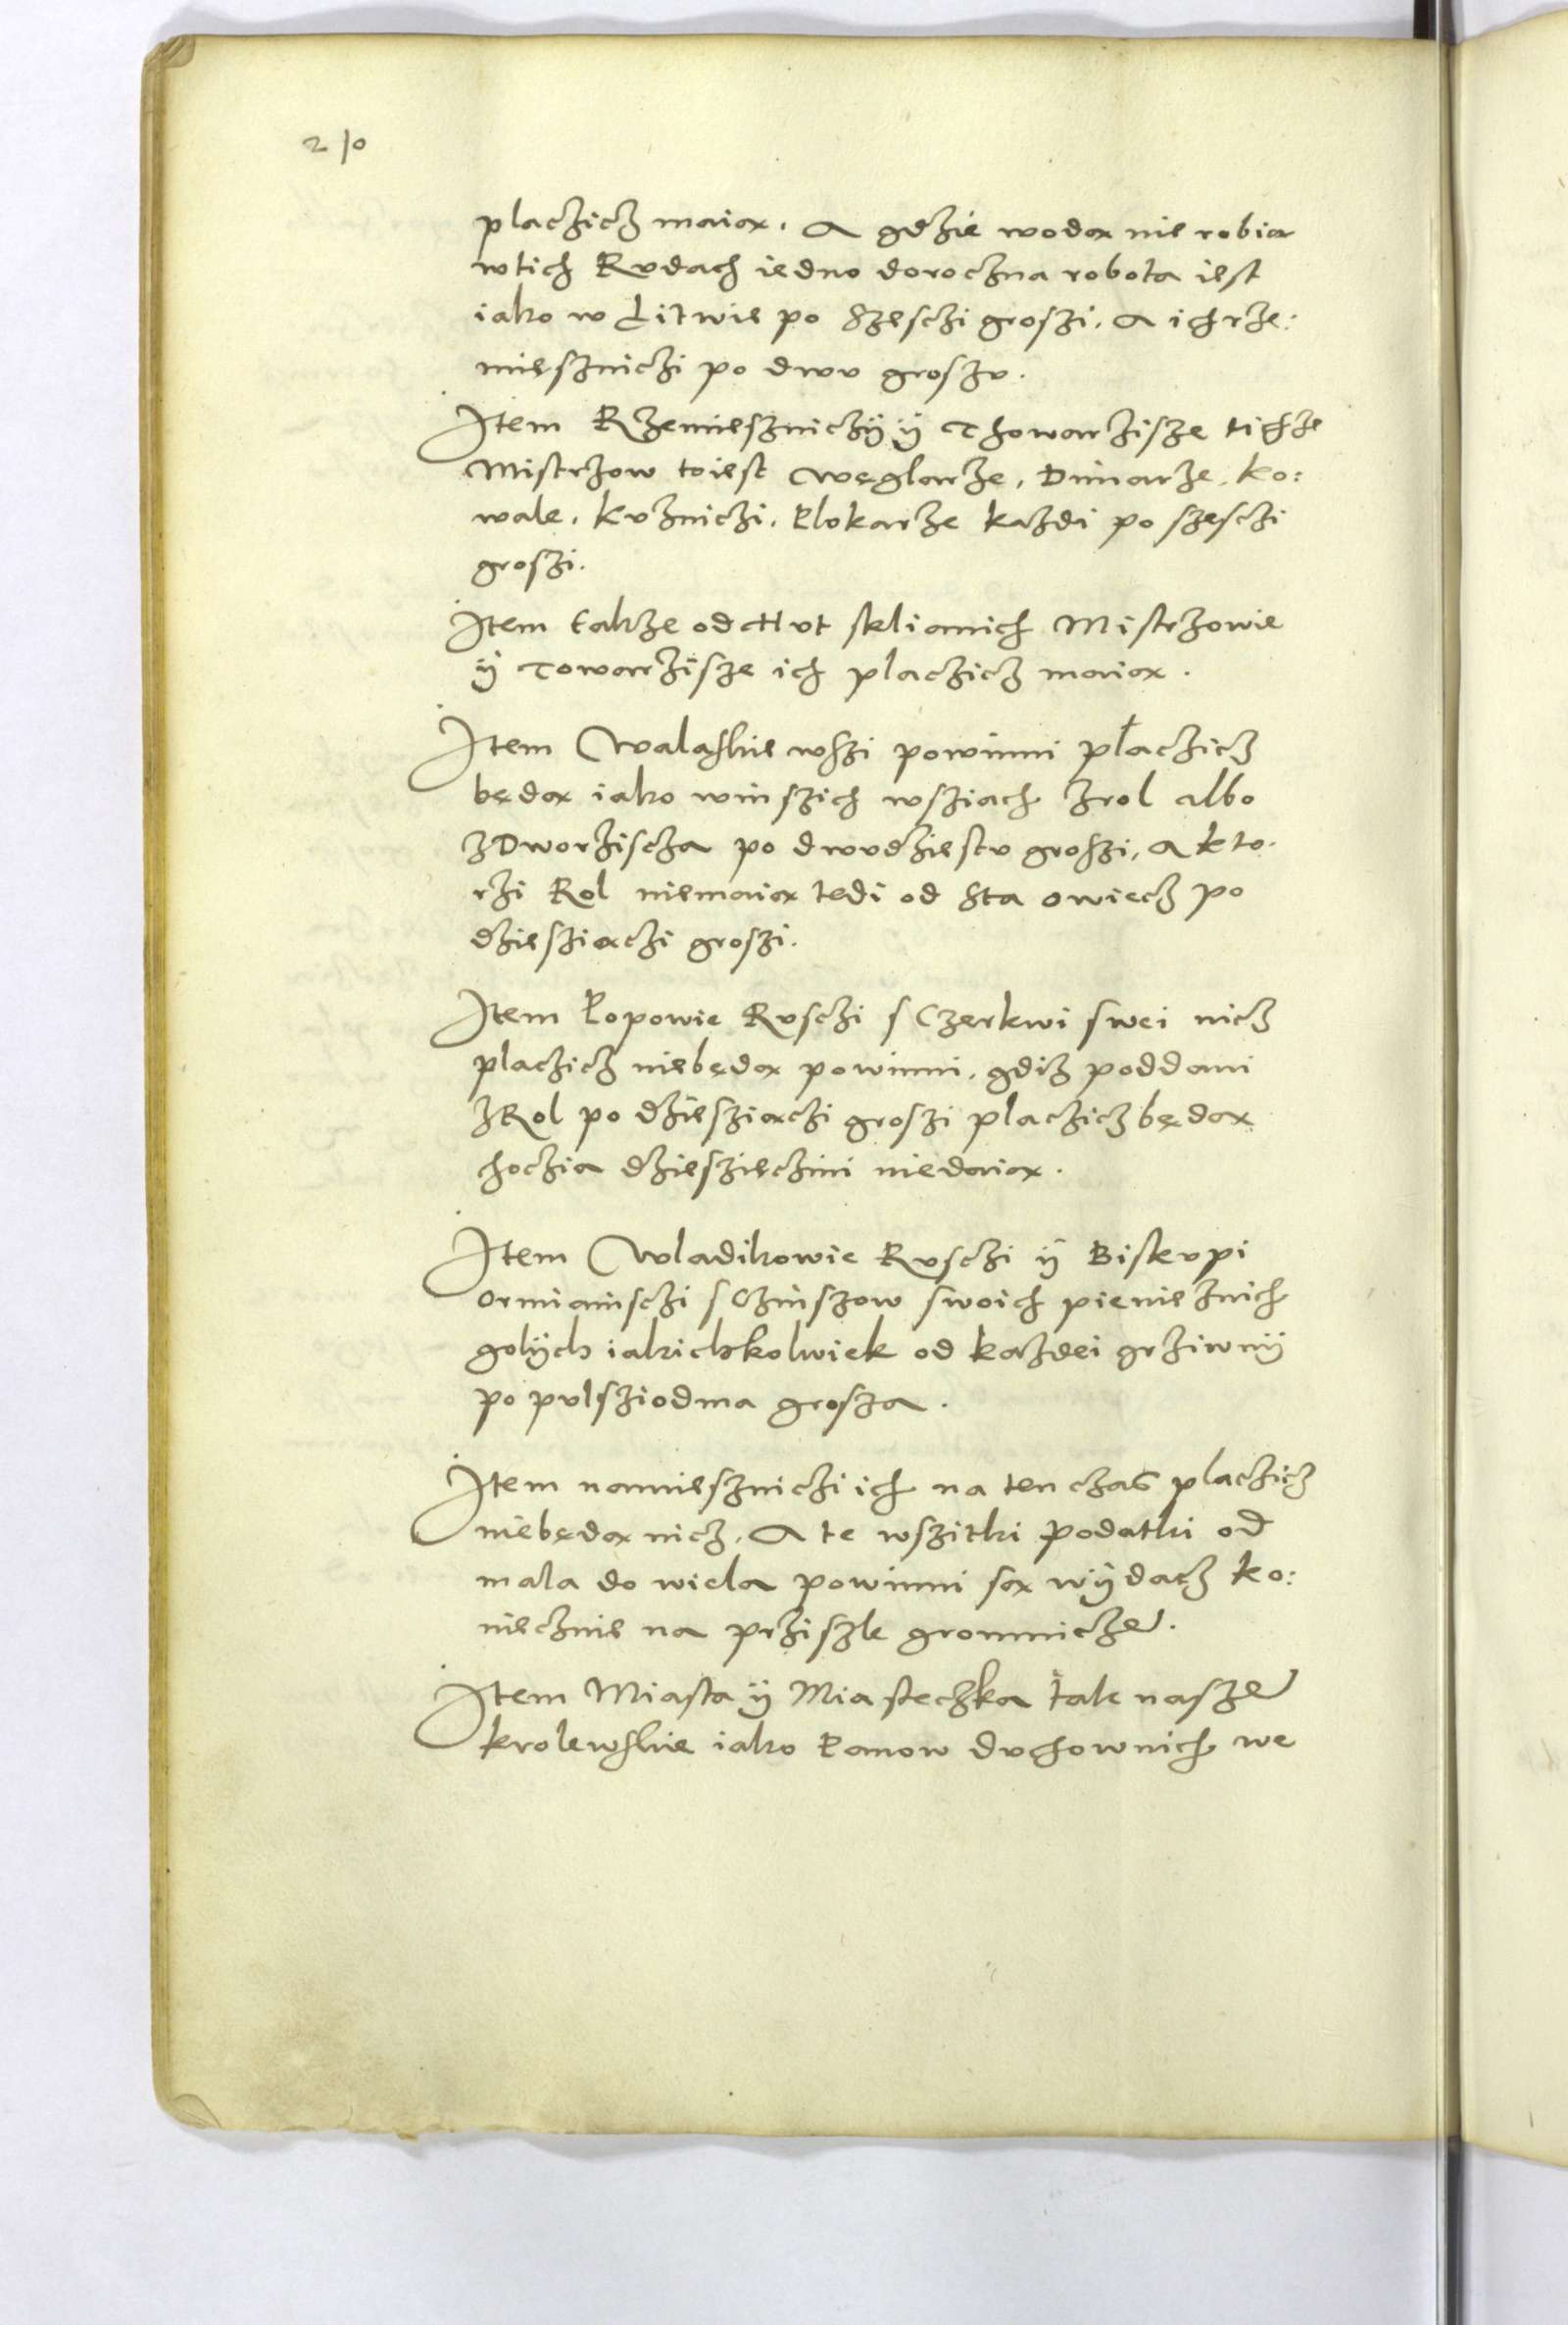 210
placzicz maią. A gdzie wodą nie robią
wtich Rudach iedno doroczna robota iest
iako w Litwie po Szesczi groszi. A ich rze:
mieszniczi po dwu groszu.
Item Rzemieszniczÿ ÿ Thowarzisze tichże
Mistrzow toiest Węglarze, Dimarze, ko:
wale, kuzniczi, Plokarze każdi po szesczi
groszi.
Item takze od Hut sklianich Mistrzowie
ÿ Towarzisze ich placzicz maią.
Item Walaskie wszi powinni płaczicz
będą iako winszich wsziach zrol albo
zDworziscza po dwudziestu groszi, A kto-
rzi Rol niemaią tedi od Sta owiecz po
dziesziączi groszi.
Item Popowie Rusczi s Czerkwi swei nicz
placzicz niebędą powinni, gdiz poddani
zRol po dziesziączi groszi placzicz będą
choczia dziesziecżini niedaią.
Item Wladikowie Rusczi ÿ Biskupi
ormiainsczi s Czinszow swoich pienieznich
golÿch iakichkolwiek od każdei grziwnÿ
po pulsziodma grosza.
Item namieszniczi ich na ten czas placzicz
niebędą nicz. A te wszitki podatki od
mala do wiela powinni są wÿdacz ko:
niecznie na prziszle gromnicze.
Item Miasta ÿ Miasteczka tak nasze
krolewskie iako Panow duchownich we